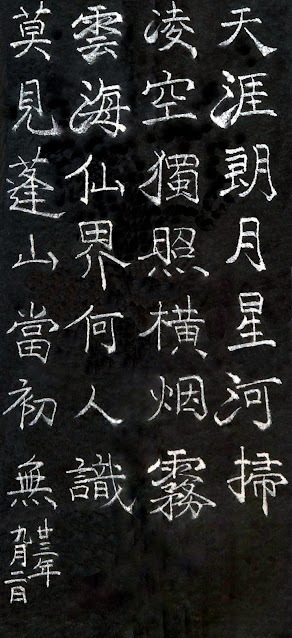 天涯朗月星河掃
凌空獨照橫烟霧
雲海仙界何人識
莫見蓬山當初無
廿三年
九月二日